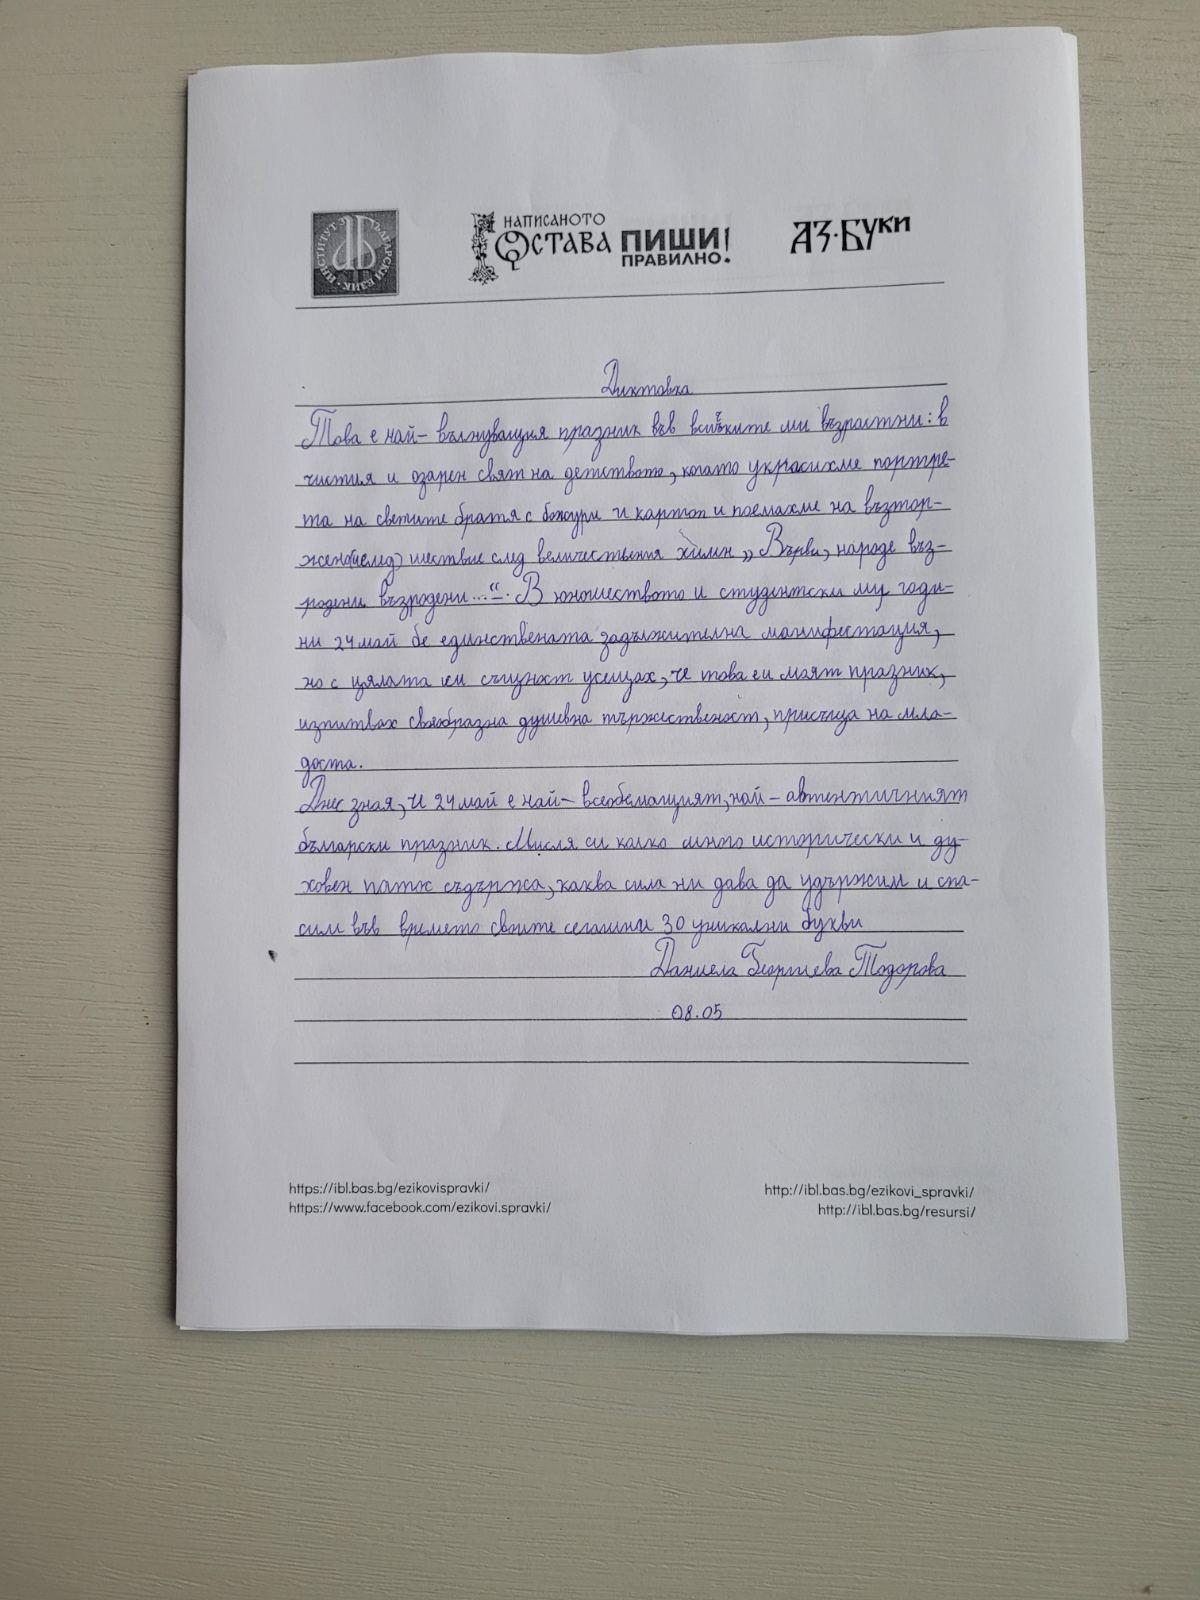 ИНСТИТУТ ЗА БЪЛГАРСКИ ЕЗИК
НАПИСАНОТО ОСТАВА ПИШИ ПРАВИЛНО!
АЗ·БУКИ
Диктовка
Това е най-вълнуващия празник във всичките ми възрастни: в
чистия и озарен свят на детството, когато украсихме портре-
та на светите братя с божури и картоп и поемахме на възтор-
шествие след величествения химн „Върви, народе въз-
родени възродени...“. В юношеството и студентски му годи-
ни 24 май бе единствената задължителна манифестация,
но с цялата си същност усещах, че това еи моят празник,
изпитвах своебразна душевна тържественост, присъща на мла-
доста.
Днес зная, че 24 май е най-всеобемащият, най-автентичният
български празник. Мисля си колко много исторически и ду-
ховен патос съдържа, каква сила ни дава да удържим и спа-
сим във времето своите сегашни 30 уникални букви
Даниела Георгиева Тодорова
08.05
https://ibl.bas.bg/ezikovispravki/
https://www.facebook.com/ezikovi.spravki/
http://ibl.bas.bg/ezikovi_spravki/
http://ibl.bas.bg/resursi/